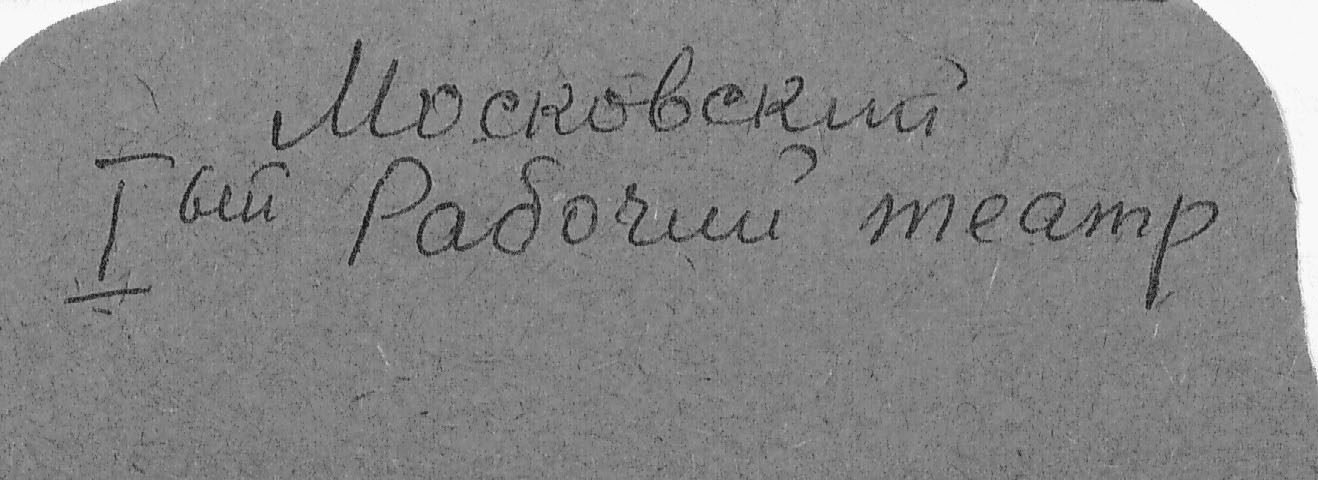 Московский
Iый Рабочий театр